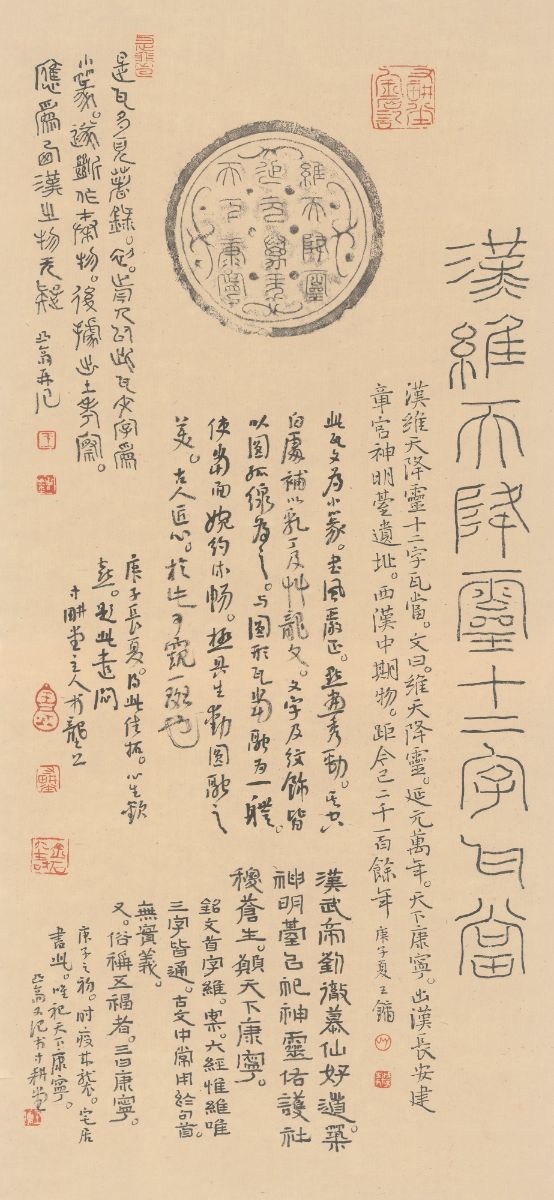 漢維天降靈十二字瓦當
漢維天降靈十二字瓦當。文曰。維天降靈。延元萬年。天下康寧。出漢長安建
章宮神明臺遺址。西漢中期物。距今已二千一百餘年
庚子夏
維天降靈
延元萬年
天下康寧
此瓦文為小篆。書風嚴正。點畫秀勁。其空
白處補以乳丁及艸龍文。文字及紋飾皆
以圓弧線為之。与圓形瓦當融為一體。
使當面婉約流暢。極具生動圓融之
美。古人匠心。於此可窺一斑也
庚子長夏。得此佳拓。心生歡
喜。題此遣問
十耕堂主人
漢武帝劉徹慕仙好道築
神明臺以祀神靈佑護社
稷蒼生。願天下康寧。
銘文首字維。案。六經惟維唯
三字皆通。古文中常用於句首
無實義。
又。俗稱五福者。三曰康寧。
庚子之初。時疫來襲。宅居
書此。唯祀天下康寧。
又記於十耕堂
是瓦多見著錄。
小篆。遂斷作秦物。後據出土考察。
應為西漢之物無疑
再記